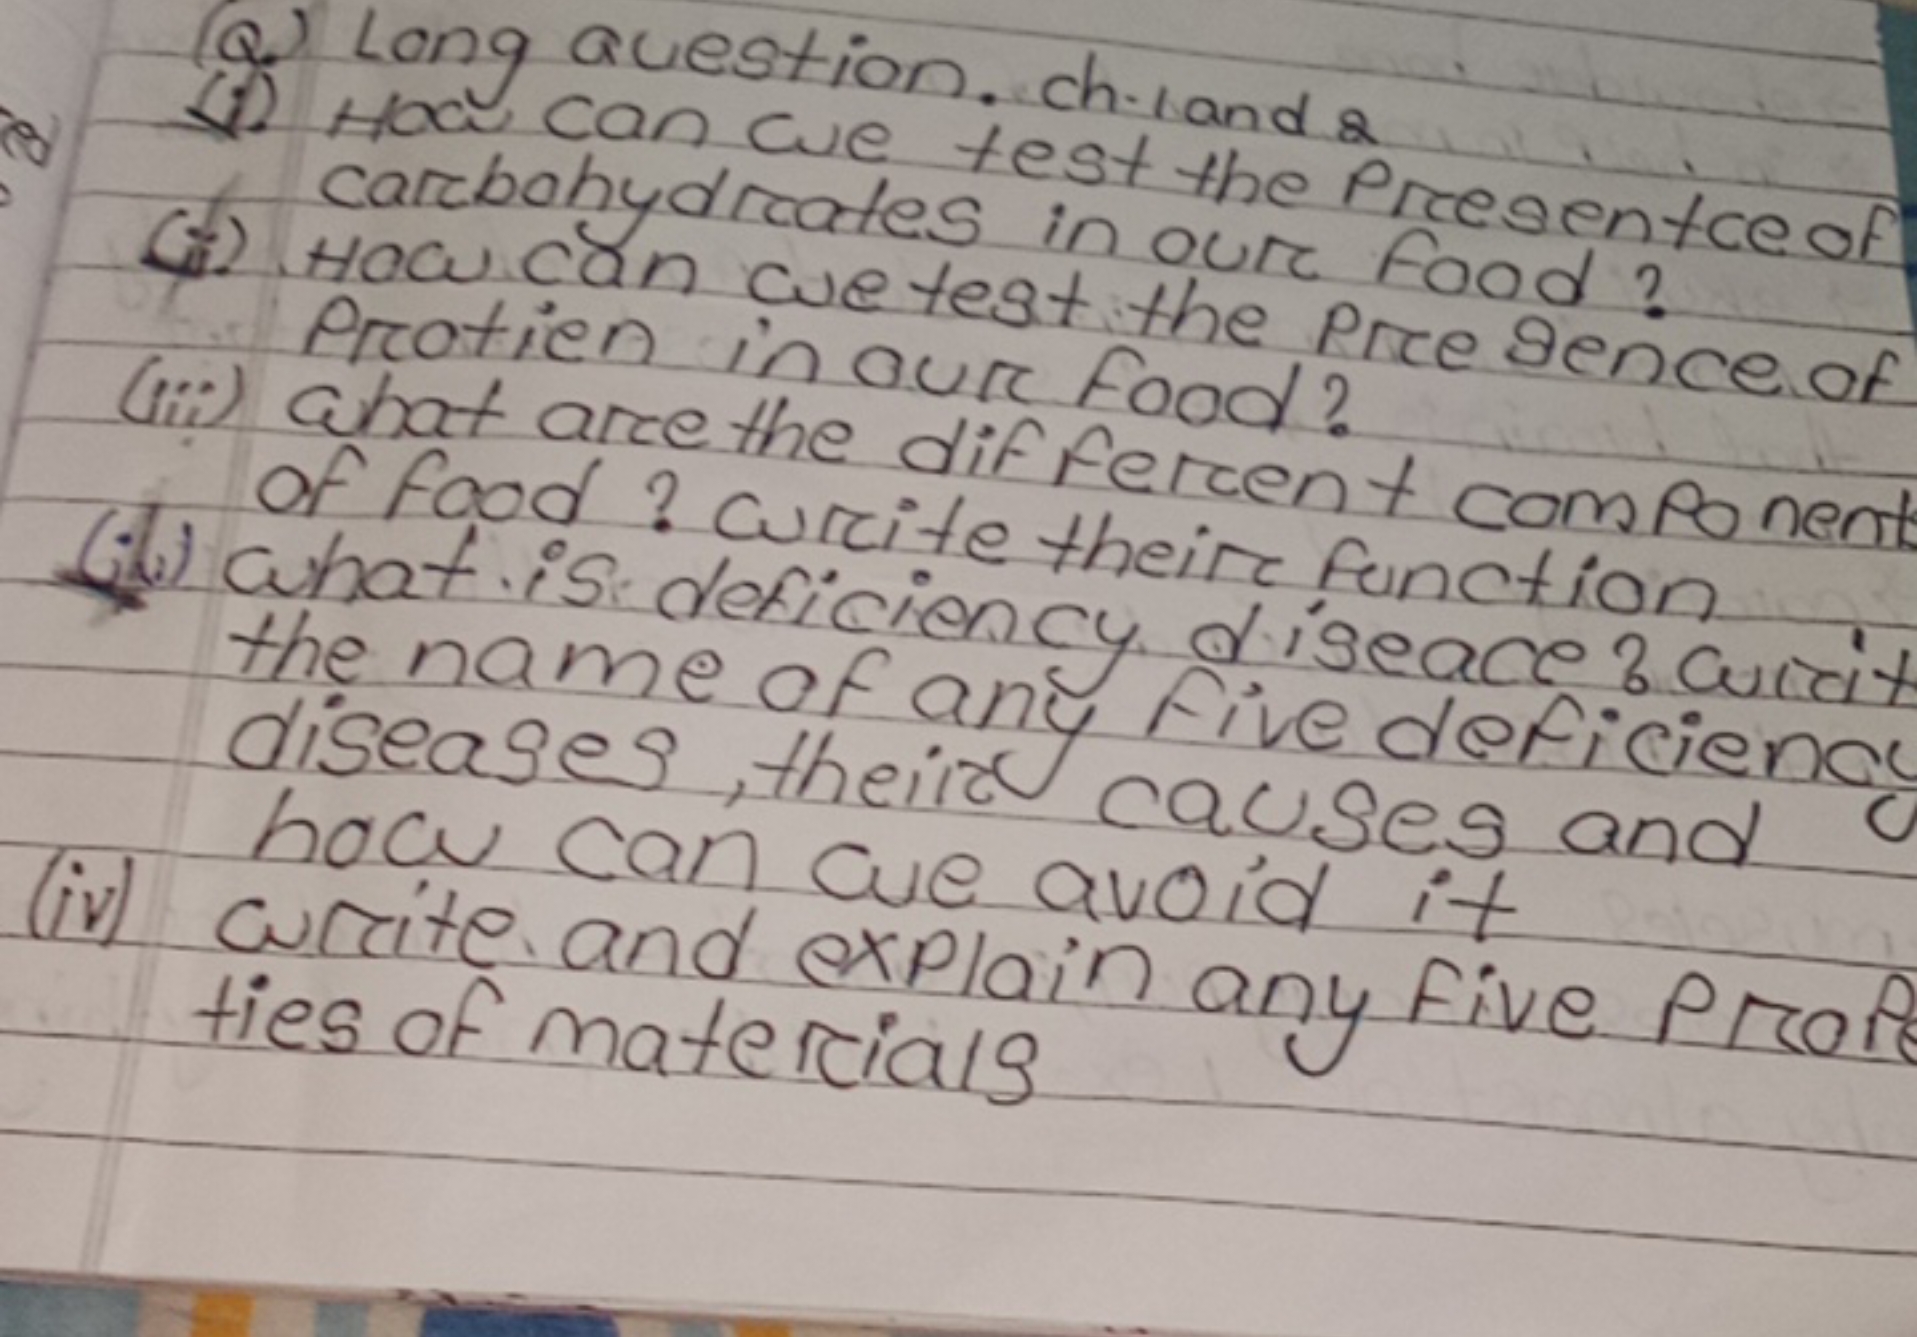 (Q.) Long question. ch.1 and 2
(i) How can we test the Presentce of
carbohydrates in our food?
(ii) How can we test the Presence of
Protien in our food?
(iii) what are the different component
of food? write their function
what is deficiency diseace? writ
the name of any five deficiency
diseases, their causes and
how can we avoid it
(iv) write and explain any five Prope
ties of materials